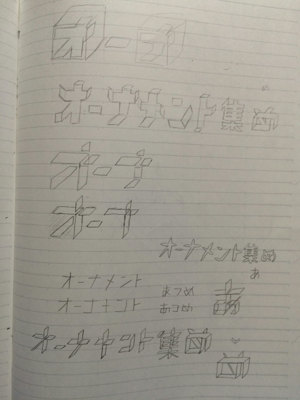 オー
オーナメント集め
オーナ
オーナ
オーナメント集め
あ
オーナメント
まつめ
あ
オーナメント
あつめ
オーナメント集め